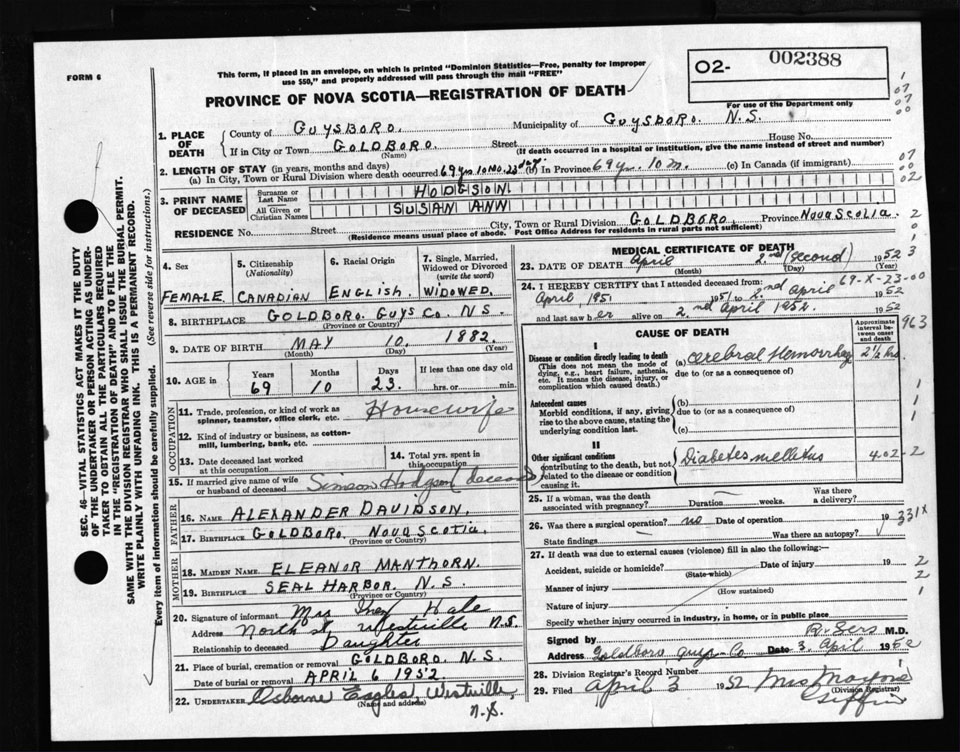 FORM 6
This form, if placed in an envelope, on which is printed "Dominion Statistics—Free, penalty for improper
use $50," and properly addressed will pass through the mail "FREE"
PROVINCE OF NOVA SCOTIA—REGISTRATION OF DEATH
02- 002388
For use of the Department only
1. PLACE OF DEATH
County of GUYSBORO. Municipality of GUYSBORO. N.S.
If in City or Town GOLDBORO. Street House No.
(Name) (If death occurred in a hospital or institution, give the name instead of street and number)
2. LENGTH OF STAY (in years, months and days)
(a) In City, Town or Rural Division where death occurred 69 yrs. 10 mo. 23 days. (b) In Province 69 y. 10 m. (c) In Canada (if immigrant)
3. PRINT NAME OF DECEASED
Surname or Last Name HODGSON
All Given or Christian Names SUSAN ANN
RESIDENCE No. Street City, Town or Rural Division GOLDBORO. Province NOVA SCOTIA.
(Residence means usual place of abode. Post Office Address for residents in rural parts not sufficient)
4. Sex
FEMALE
5. Citizenship
(Nationality)
CANADIAN
6. Racial Origin
ENGLISH.
7. Single, Married, Widowed or Divorced
(write the word)
WIDOWED.
8. BIRTHPLACE GOLDBORO. GUYS CO. N.S.
(Province or Country)
9. DATE OF BIRTH MAY 10. 1882.
(Month) (Day) (Year)
10. AGE in Years Months Days If less than one day old
69 10 23. hrs. or min.
OCCUPATION
11. Trade, profession, or kind of work as spinner, teamster, office clerk, etc. Housewife
12. Kind of industry or business, as cotton-mill, lumbering, bank, etc.
13. Date deceased last worked at this occupation
14. Total yrs. spent in this occupation
15. If married give name of wife or husband of deceased Simson Hodgson deceased
FATHER
16. NAME ALEXANDER DAVIDSON.
17. BIRTHPLACE GOLDBORO. NOVA SCOTIA.
(Province or Country)
MOTHER
18. MAIDEN NAME ELEANOR MANTHORN.
19. BIRTHPLACE SEAL HARBOR. N.S.
(Province or Country)
20. Signature of informant Mrs Hale
Address North St Westville N.S.
Relationship to deceased Daughter
21. Place of burial, cremation or removal GOLDBORO. N.S.
Date of burial or removal APRIL 6 1952
22. UNDERTAKER Osborne Eagles, Westville,
(Name and address)
N.S.
MEDICAL CERTIFICATE OF DEATH
23. DATE OF DEATH April 2nd (second) 1952
(Month) (Day) (Year)
24. I HEREBY CERTIFY that I attended deceased from: 69-X-23-00
April, 1951 1951 to 2nd April 1952
and last saw her alive on 2nd April 1952. 1952
CAUSE OF DEATH
Approximate interval between onset and death
963
I
Disease or condition directly leading to death (a) Cerebral Hemorrhag 2½ hrs.
(This does not mean the mode of dying, e.g., heart failure, asthenia, etc. It means the disease, injury, or complication which caused death.)
due to (or as a consequence of)
Antecedent causes
Morbid conditions, if any, giving rise to the above cause, stating the underlying condition last.
(b)
due to (or as a consequence of)
(c)
II
Other significant conditions
contributing to the death, but not related to the disease or condition causing it.
Diabetes mellitus 402-2
25. If a woman, was the death associated with pregnancy? Duration weeks. Was there a delivery?
26. Was there a surgical operation? no Date of operation 19 331X
State findings Was there an autopsy?
27. If death was due to external causes (violence) fill in also the following:—
Accident, suicide or homicide? Date of injury 19
(State which)
Manner of injury
(How sustained)
Nature of injury
Specify whether injury occurred in industry, in home, or in public place
Signed by M.D.
Address Goldboro Guys. Co Date 3 April 1952
28. Division Registrar's Record Number
29. Filed April 3 1952 Mrs Giffin
(Division Registrar)
SEC. 46—VITAL STATISTICS ACT MAKES IT THE DUTY
OF THE UNDERTAKER OR PERSON ACTING AS UNDERTAKER
TO OBTAIN ALL THE PARTICULARS REQUIRED
IN THE "REGISTRATION OF DEATH" AND TO FILE THE
SAME WITH THE DIVISION REGISTRAR WHO SHALL ISSUE THE BURIAL PERMIT.
WRITE PLAINLY WITH UNFADING INK. THIS IS A PERMANENT RECORD.
Every item of information should be carefully supplied. (See reverse side for instructions.)